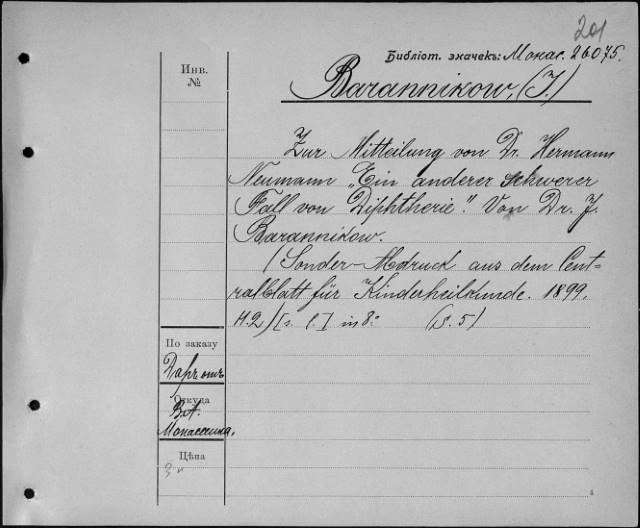 201
Библіот. значекъ: Монас. 26075.
Инв.
№
Barannikow, (J.)
Zur Mitteilung von Dr. Hermann
Neumann „Ein anderer schwerer
Fall von Diphtherie". Von Dr. J.
Barannikow.
(Sonder-Abdruck aus dem Cent-
ralblatt für Kinderheilkunde. 1899.
H.2) [s. l.] in 8º (S. 5)
По заказу
Даръ отъ
Откуда
В.А.
Монассеина.
Цѣна